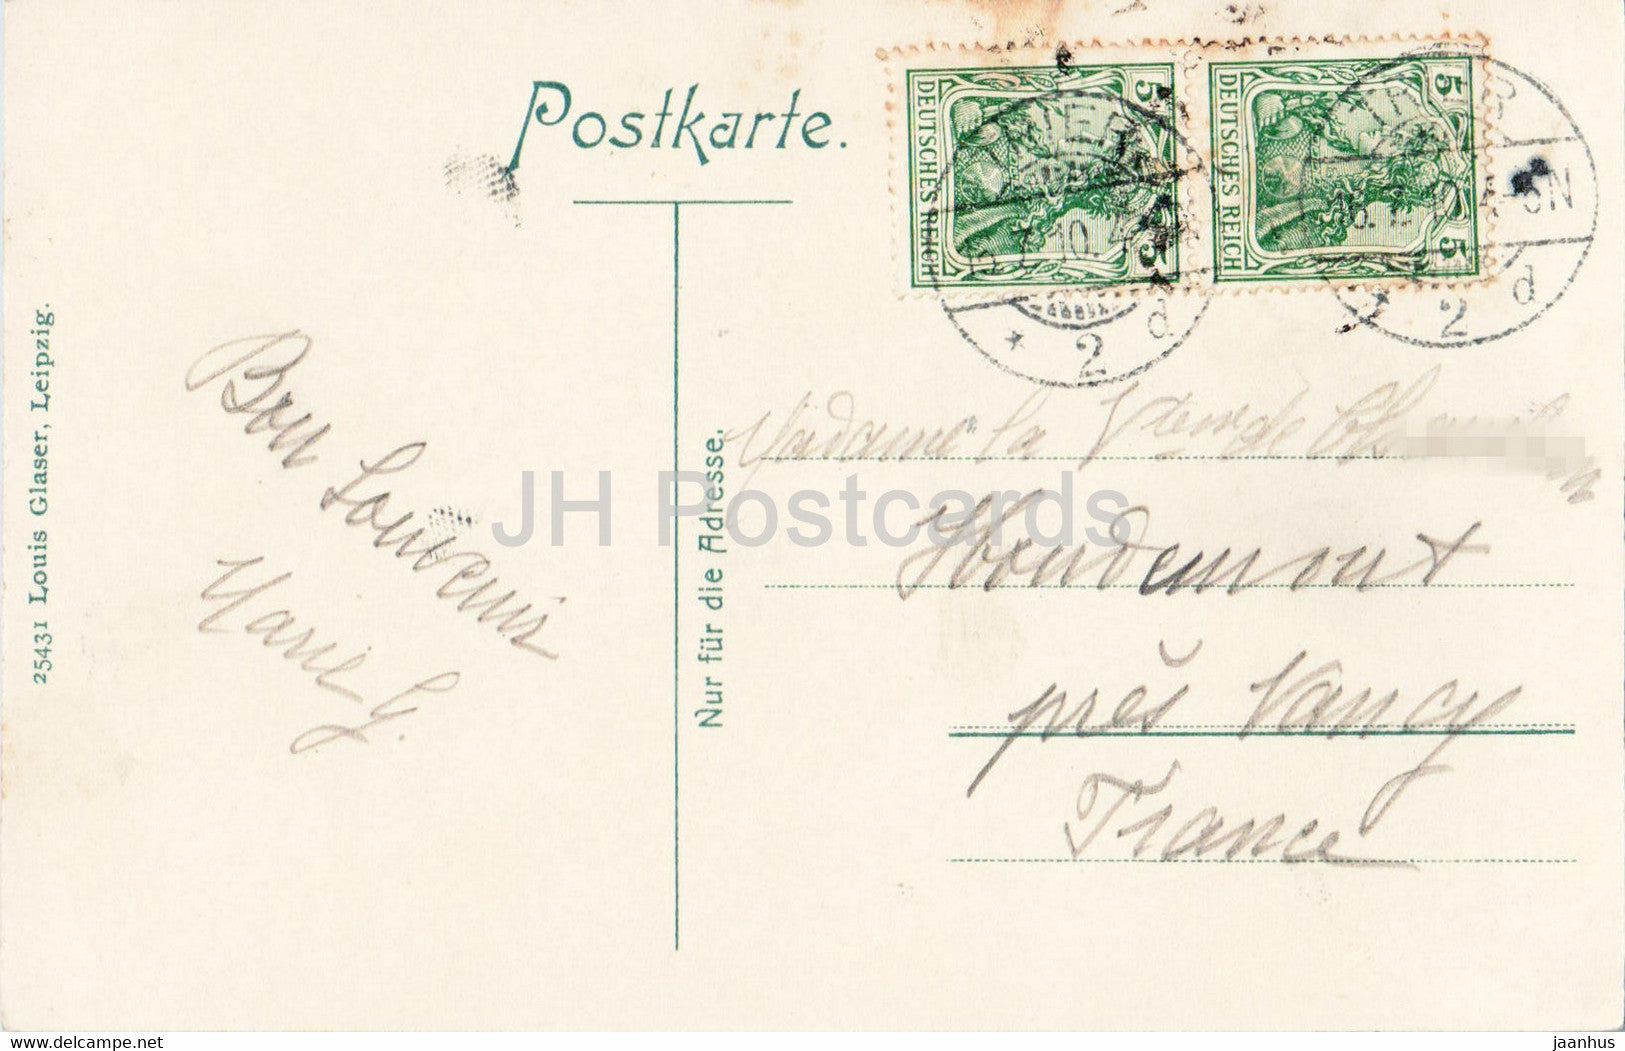 Postkarte.
5 DEUTSCHES REICH 5
5 DEUTSCHES REICH 5
TRIER
2 d
TRIER
5N
2 d
25431 Louis Glaser, Leipzig.
Nur für die Adresse.
Bon Souvenir
Marie G.
Madame la
Houdemont
près Nancy
France
JH Postcards
www.delcampe.net
jaanhus